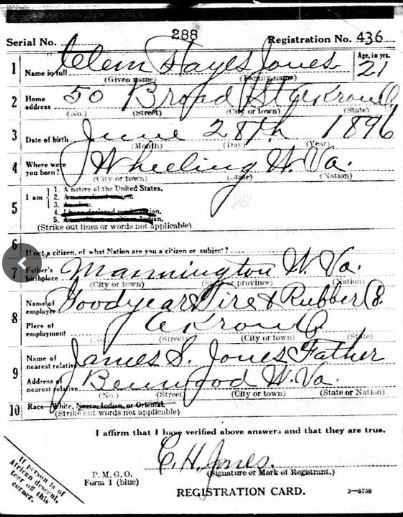 288
Serial No. Registration No. 436
1 Name in full Clem Hayes Jones Age, in yrs. 21
(Given name) (Family name)
2 Home address 50 Broad St Akron O
(No.) (Street) (City or town) (State)
3 Date of birth June 28th 1896
(Month) (Day) (Year)
4 Where were you born? Wheeling W. Va.
(City or town) (State) (Nation)
5 I am
1. A native of the United States.
2. A naturalized citizen.
3. An alien.
4. I have declared my intention.
5.
(Strike out lines or words not applicable)
6 If not a citizen, of what Nation are you a citizen or subject?
7 Father's birthplace Mannington W. Va.
(City or town) (State or province) (Nation)
8 Name of employer Goodyear Tire & Rubber Co.
Place of employment Akron O
(Street) (City or town) (State)
9 Name of nearest relative James S. Jones Father
Address of nearest relative Benwood W. Va.
(No.) (Street) (City or town) (State or Nation)
10 Race—White, Negro, Indian, or Oriental
(Strike out words not applicable)
I affirm that I have verified above answers and that they are true.
C. H. Jones.
(Signature or Mark of Registrant.)
P. M. G. O.
Form 1 (blue)
REGISTRATION CARD.
If person is of
African descent,
tear off this
corner.